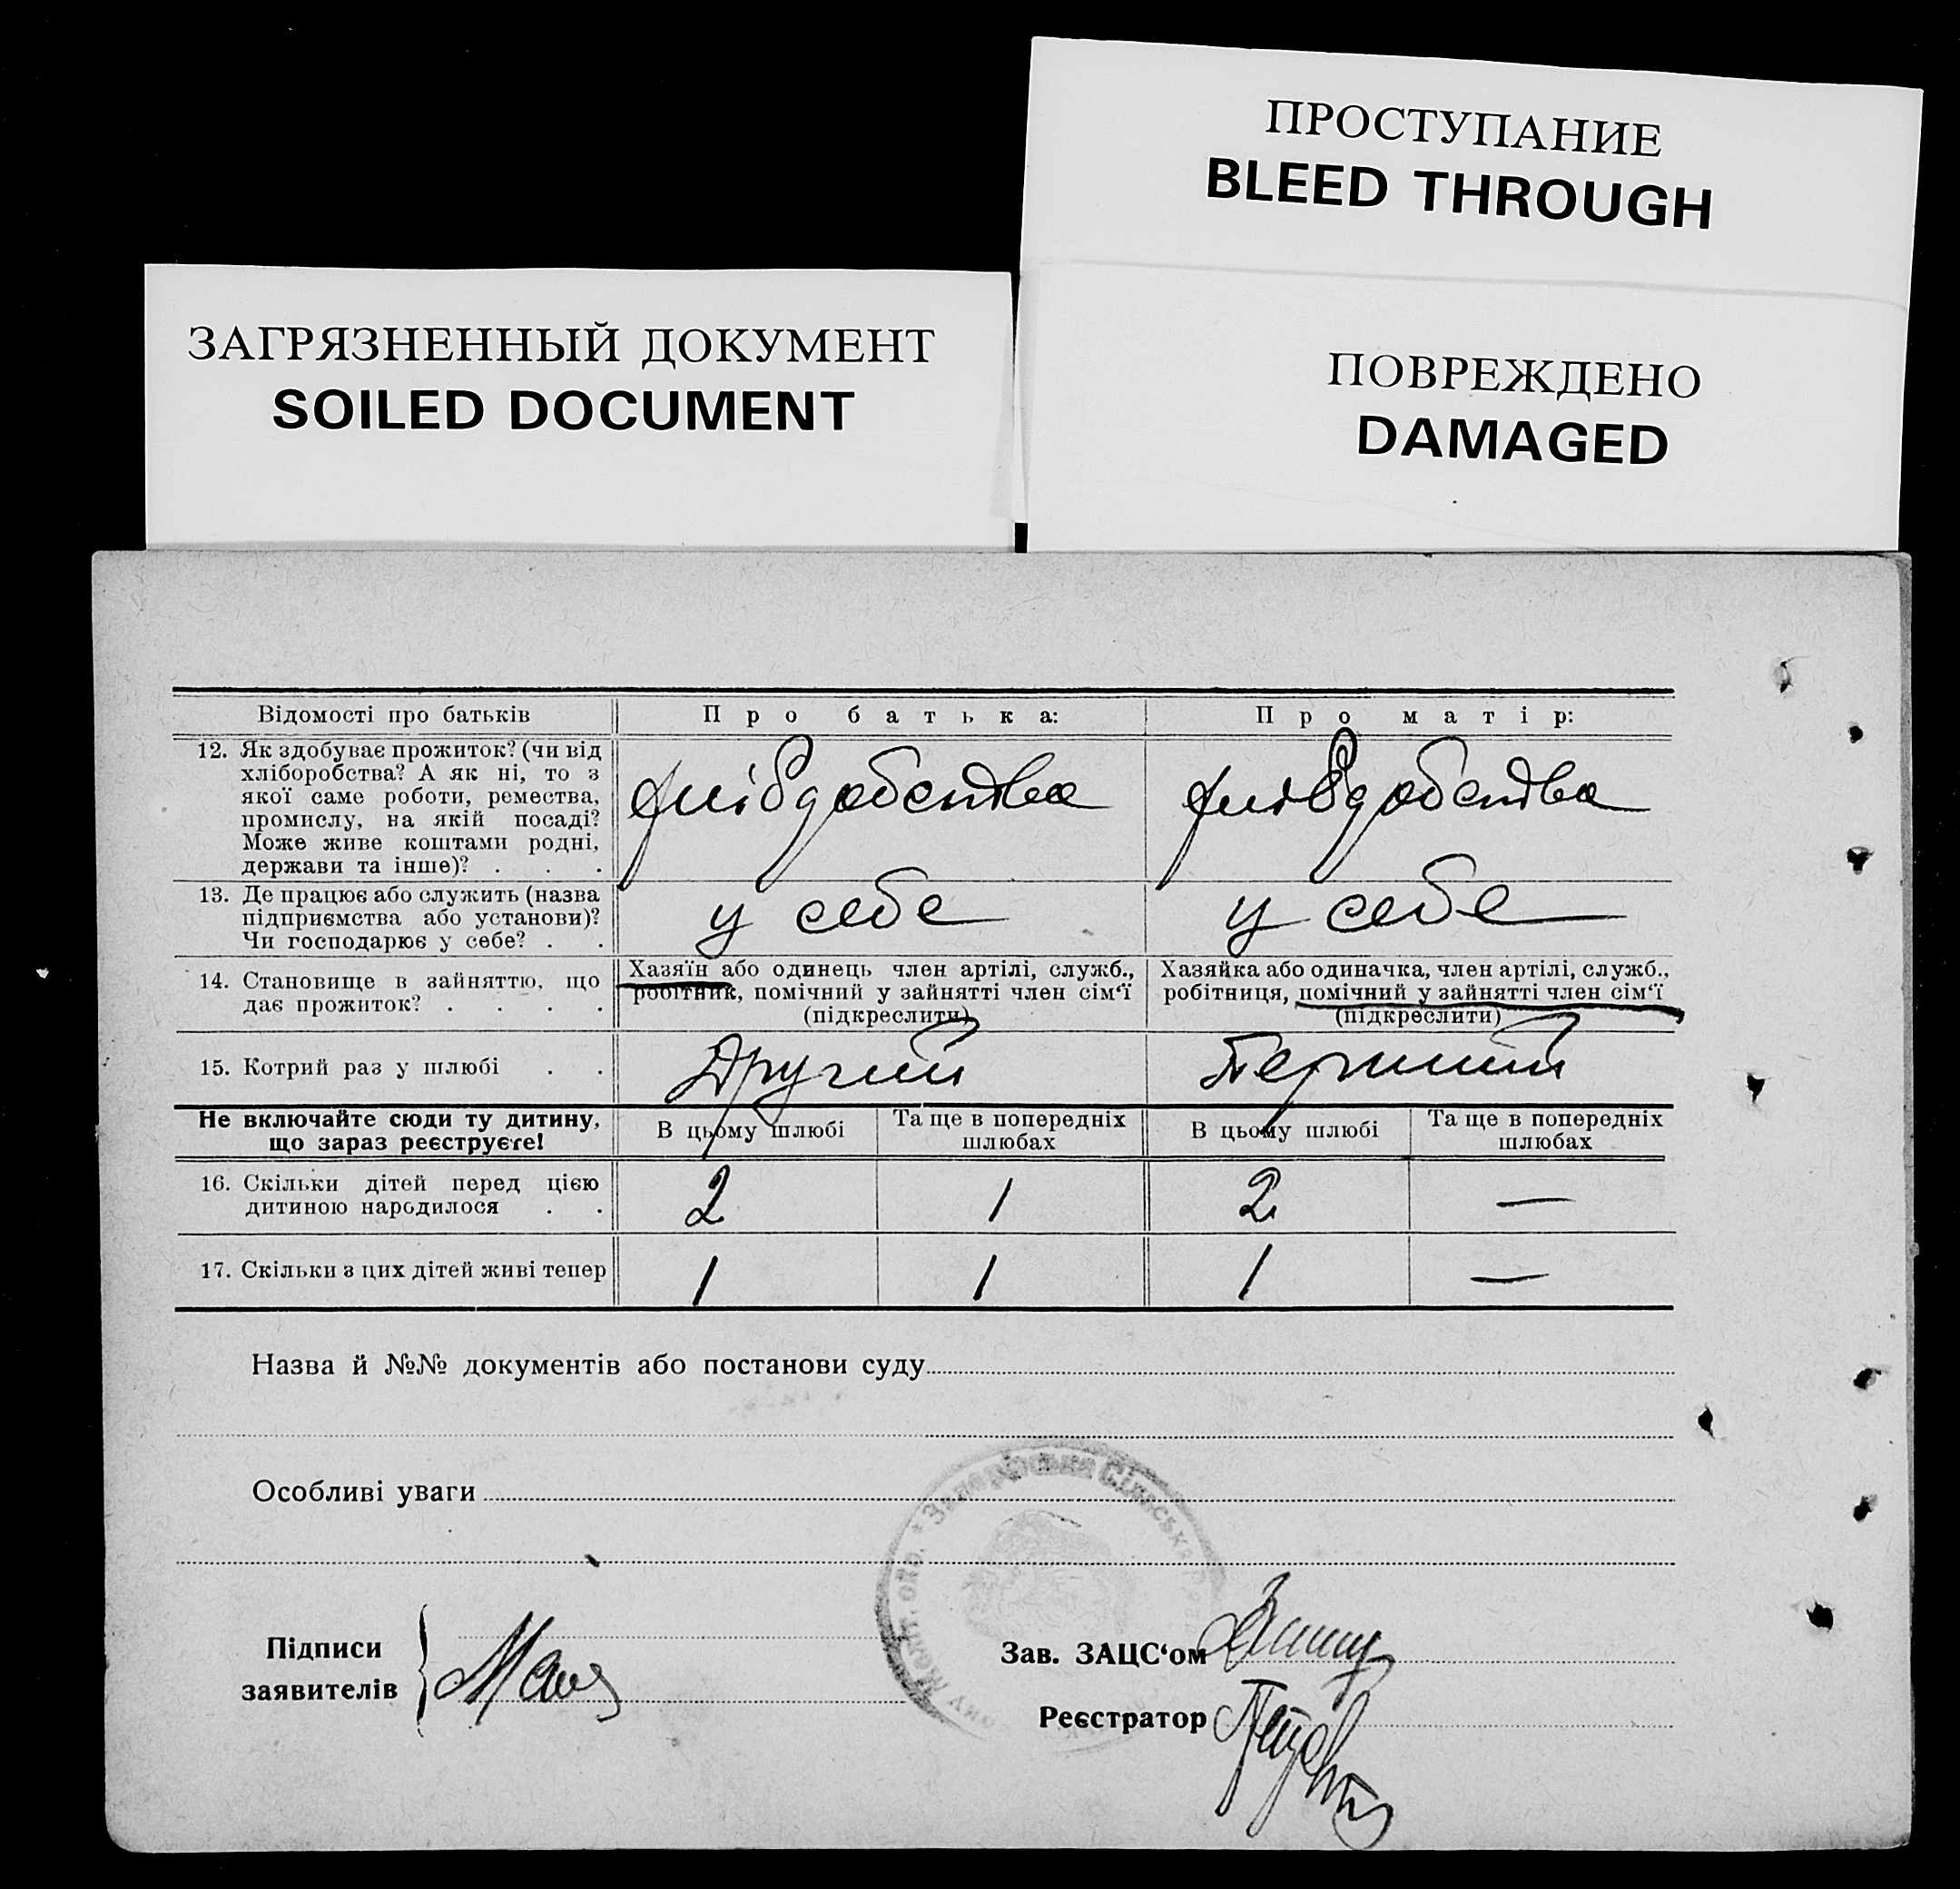 ПРОСТУПАНИЕ
BLEED THROUGH
ЗАГРЯЗНЕННЫЙ ДОКУМЕНТ
SOILED DOCUMENT
ПОВРЕЖДЕНО
DAMAGED
Відомості про батьків
Про батька:
Про матір:
12. Як здобуває прожиток? (чи від
хліборобства? А як ні, то з
якої саме роботи, ремества,
промислу, на якій посаді?
Може живе коштами родні,
держави та інше)? . . .
хліборобства
хліборобства
13. Де працює або служить (назва
підприємства або установи)?
Чи господарює у себе? . .
у себе
у себе
14. Становище в зайняттю, що
дає прожиток? . . . .
Хазяїн або одинець член артілі, служб.,
робітник, помічний у зайнятті член сім‘ї
(підкреслити)
Хазяйка або одиначка, член артілі, служб.,
робітниця, помічний у зайнятті член сім‘ї
(підкреслити)
15. Котрий раз у шлюбі . .
Другий
Перший
Не включайте сюди ту дитину,
що зараз реєструєте!
В цьому шлюбі
Та ще в попередніх
шлюбах
В цьому шлюбі
Та ще в попередніх
шлюбах
16. Скільки дітей перед цією
дитиною народилося . .
2
1
2
—
17. Скільки з цих дітей живі тепер
1
1
1
—
Назва й №№ документів або постанови суду
Особливі уваги
Підписи
заявителів
Зав. ЗАЦС‘ом
Реєстратор